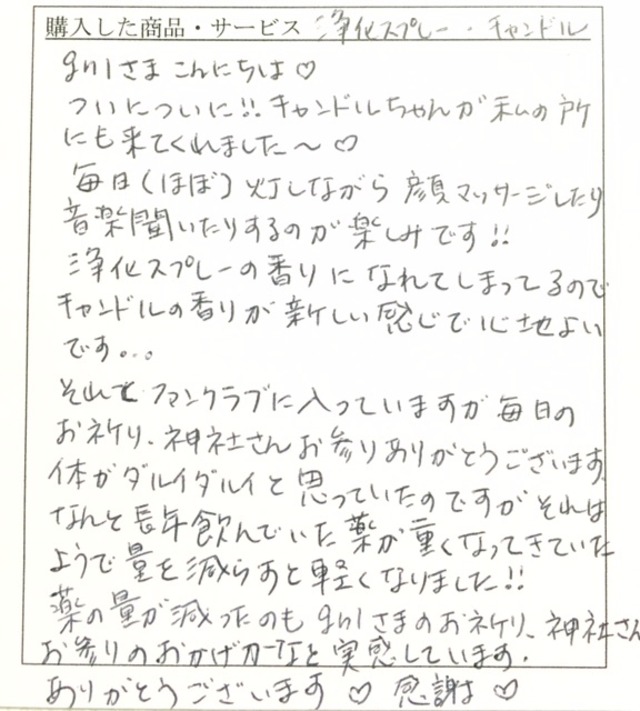 購入した商品・サービス 浄化スプレー・キャンドル
gnlさまこんにちは♡
ついについに!!キャンドルちゃんが私の所
にも来てくれました〜♡
毎日(ほぼ)灯しながら顔マッサージしたり
音楽聞いたりするのが楽しみです!!
浄化スプレーの香りになれてしまってるので
キャンドルの香りが新しい感じで心地よい
です...
それとファンクラブに入っていますが毎日の
お祈り、神社さんお参りありがとうございます。
体がダルイダルイと思っていたのですがそれは
なんと長年飲んでいた薬が重くなってきていた
ようで量を減らすと軽くなりました!!
薬の量が減ったのもgnlさまのお祈り、神社さん
お参りのおかげかなと実感しています.
ありがとうございます♡ 感謝は♡